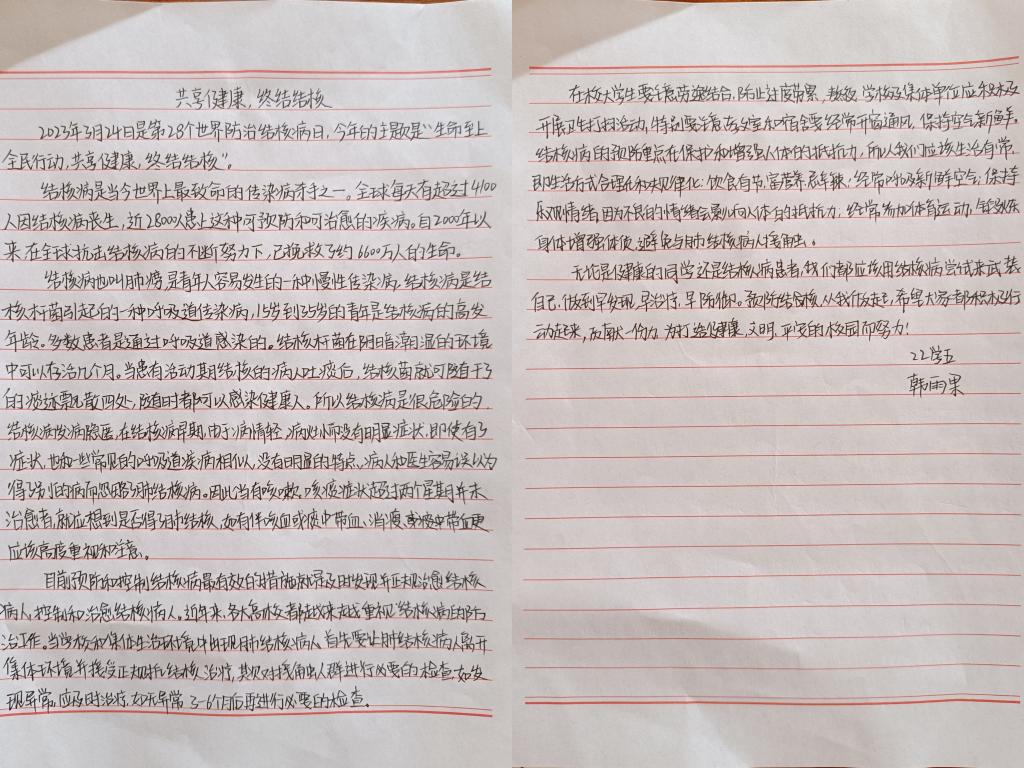 共享健康,终结结核
2023年3月24日是第28个世界防治结核病日,今年的主题是"生命至上
全民行动,共享健康,终结结核"。
结核病是当今世界上最致命的传染病杀手之一。全球每天有超过4100
人因结核病丧生,近28000人患上这种可预防和可治愈的疾病。自2000年以
来在全球抗击结核病的不断努力下,已挽救了约6600万人的生命。
结核病也叫肺痨,是青年人容易发生的一种慢性传染病,结核病是结
核杆菌引起的一种呼吸道传染病,15岁到35岁的青年是结核病的高发
年龄。多数患者是通过呼吸道感染的。结核杆菌在阴暗潮湿的环境
中可以存活几个月。当患有活动期结核的病人吐痰后,结核菌就可随干了
的痰迹飘散四处,随时都可以感染健康人。所以结核病是很危险的,
结核病发病隐匿,在结核病早期,由于病情轻、病灶小而没有明显症状,即使有了
症状,也和一些常见的呼吸道疾病相似,没有明显的特点,病人和医生容易误以为
得了别的病而忽略了肺结核病。因此当有咳嗽、咳痰症状超过两个星期并未
治愈者,就应想到是否得了肺结核,如有伴咳血或痰中带血、消瘦、更
应该高度重视和注意。
目前预防和控制结核病最有效的措施就是及时发现并正规治愈结核
病人,控制和治愈结核病人。近年来,各大高校都越来越重视结核病的防
治工作。当学校和集体生活环境中出现肺结核病人,首先要让肺结核病人离开
集体环境并接受正规抗结核治疗,其次对接触人群进行必要的检查,如发
现异常,应及时治疗,如无异常3-6个月后再进行必要的检查。
在校大学生要注意劳逸结合,防止过度劳累,熬夜,学校及集体单位应积极
开展卫生打扫活动,特别要注意在教室和宿舍要经常开窗通风,保持空气新鲜。
结核病的预防重点在保护和增强人体的抵抗力,所以我们应该生活有常,
即生活方式合理化和规律化;饮食有节,富营养忌辛辣;经常呼吸新鲜空气;保持
乐观情绪,因为不良的情绪会影响人体的抵抗力,经常参加体育运动,锻炼
身体增强体质,避免与肺结核病人接触。
无论是健康的同学还是结核病患者,我们都应该用结核病尝试来武装
自己,做到早发现,早治疗,早防御。预防结核,从我做起,希望大家都积极行
动起来,贡献一份力,为打造健康、文明、平安的校园而努力!
22学五
韩雨果